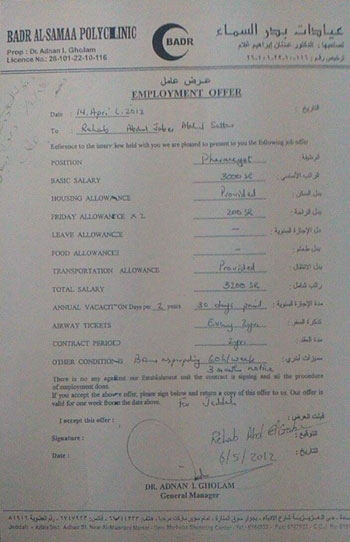 BADR AL-SAMAA POLYCLINIC
Prop : Dr. Adnan I. Gholam
Licence No.: 26-101-22-10-116
BADR
عيادات بدر السماء
لصاحبها : الدكتور عدنان إبراهيم غلام
ترخيص رقم : ١١٦-١٠-٢٢-١٠١-٢٦
عرض عمل
EMPLOYMENT OFFER
Date : 14. April. 2012 التاريخ :
To Rehab Abdul Sattar
Reference to the interview held with you we are pleased to present to you the following job offer
POSITION Pharmacist الوظيفة :
BASIC SALARY 3000 SR الراتب الأساسي :
HOUSING ALLOWANCE Provided بدل السكن :
FRIDAY ALLOWANCE x 2 200 SR
LEAVE ALLOWANCE - بدل الإجازة السنوية :
FOOD ALLOWANCE - بدل طعام :
TRANSPORTATION ALLOWANCE Provided بدل الانتقال :
TOTAL SALARY 3200 SR راتب شامل :
ANNUAL VACATION Days per 2 years 30 days paid مدة الإجازة السنوية :
AIRWAY TICKETS Every 2 yrs تذكرة السفر :
CONTRACT PERIOD 2 yrs مدة العقد :
OTHER CONDITIONS 60h/week مميزات أخرى :
3 month notice
There is no any against our Establishment until the contract is signing and all the procedure
of employment done.
If you accept the above offer, please sign below and return a copy of this offer to us. Our offer is
valid for one week from the date above. For Jeddah
I accept this offer : قبلت العرض :
Signature : Rehab التوقيع :
Date : 6/5/2012 التاريخ :
DR. ADNAN I GHOLAM
General Manager